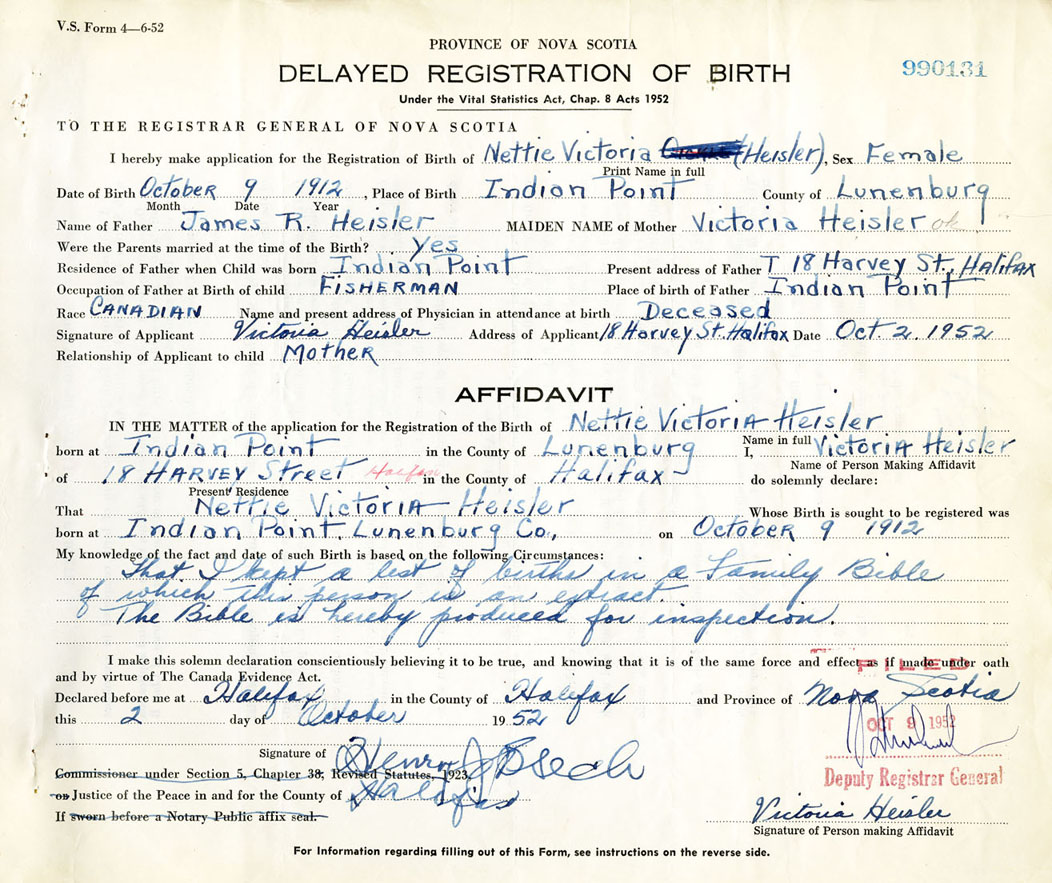 V.S. Form 4—6-52
PROVINCE OF NOVA SCOTIA
DELAYED REGISTRATION OF BIRTH
990131
Under the Vital Statistics Act, Chap. 8 Acts 1952
TO THE REGISTRAR GENERAL OF NOVA SCOTIA
I hereby make application for the Registration of Birth of Nettie Victoria (Heisler), Sex Female
Print Name in full
Date of Birth October 9 1912, Place of Birth Indian Point County of Lunenburg
Month Date Year
Name of Father James R. Heisler MAIDEN NAME of Mother Victoria Heisler ok
Were the Parents married at the time of the Birth? Yes
Residence of Father when Child was born Indian Point Present address of Father 18 Harvey St., Halifax
Occupation of Father at Birth of child Fisherman Place of birth of Father Indian Point
Race Canadian Name and present address of Physician in attendance at birth Deceased
Signature of Applicant Victoria Heisler Address of Applicant 18 Harvey St. Halifax Date Oct. 2. 1952
Relationship of Applicant to child Mother
AFFIDAVIT
IN THE MATTER of the application for the Registration of the Birth of Nettie Victoria Heisler
Name in full
born at Indian Point in the County of Lunenburg I, Victoria Heisler
Name of Person Making Affidavit
of 18 Harvey Street Halifax in the County of Halifax do solemnly declare:
Present Residence
That Nettie Victoria Heisler Whose Birth is sought to be registered was
born at Indian Point, Lunenburg Co., on October 9 1912
My knowledge of the fact and date of such Birth is based on the following Circumstances:
That I kept a list of births in a Family Bible
of which this person is an extract.
The Bible is hereby produced for inspection.
I make this solemn declaration conscientiously believing it to be true, and knowing that it is of the same force and effect as if made under oath
and by virtue of The Canada Evidence Act.
FILED
Declared before me at Halifax in the County of Halifax and Province of Nova Scotia
this 2 day of October 1952
OCT 9 1952
Signature of Henry J Beech
Commissioner under Section 5, Chapter 38, Revised Statutes, 1923,
Deputy Registrar General
or Justice of the Peace in and for the County of Halifax
If sworn before a Notary Public affix seal.
Victoria Heisler
Signature of Person making Affidavit
For Information regarding filling out of this Form, see instructions on the reverse side.